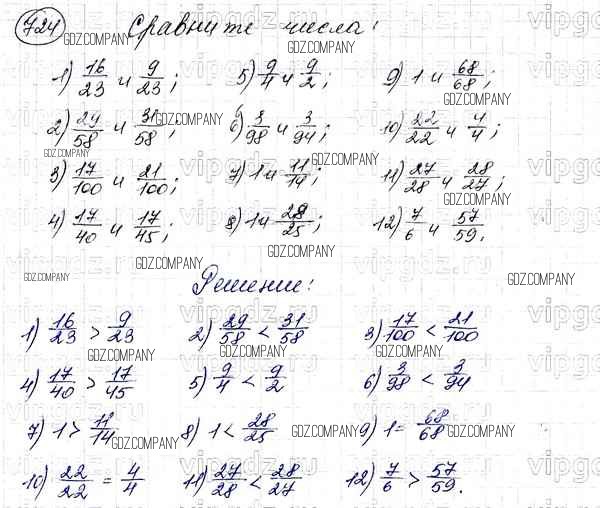 724 Сравните числа:
1) 16/23 и 9/23; 5) 9/4 и 9/2; 9) 1 и 68/68;
2) 29/58 и 31/58; 6) 3/98 и 3/94; 10) 22/22 и 4/4;
3) 17/100 и 21/100; 7) 1 и 11/14; 11) 27/28 и 28/27;
4) 17/40 и 17/45; 8) 1 и 28/25; 12) 7/6 и 57/59.
Решение:
1) 16/23 > 9/23 2) 29/58 < 31/58 3) 17/100 < 21/100
4) 17/40 > 17/45 5) 9/4 < 9/2 6) 3/98 < 3/94
7) 1 > 11/14 8) 1 < 28/25 9) 1 = 68/68
10) 22/22 = 4/4 11) 27/28 < 28/27 12) 7/6 > 57/59.
GDZ.COMPANY
vipgdz.ru